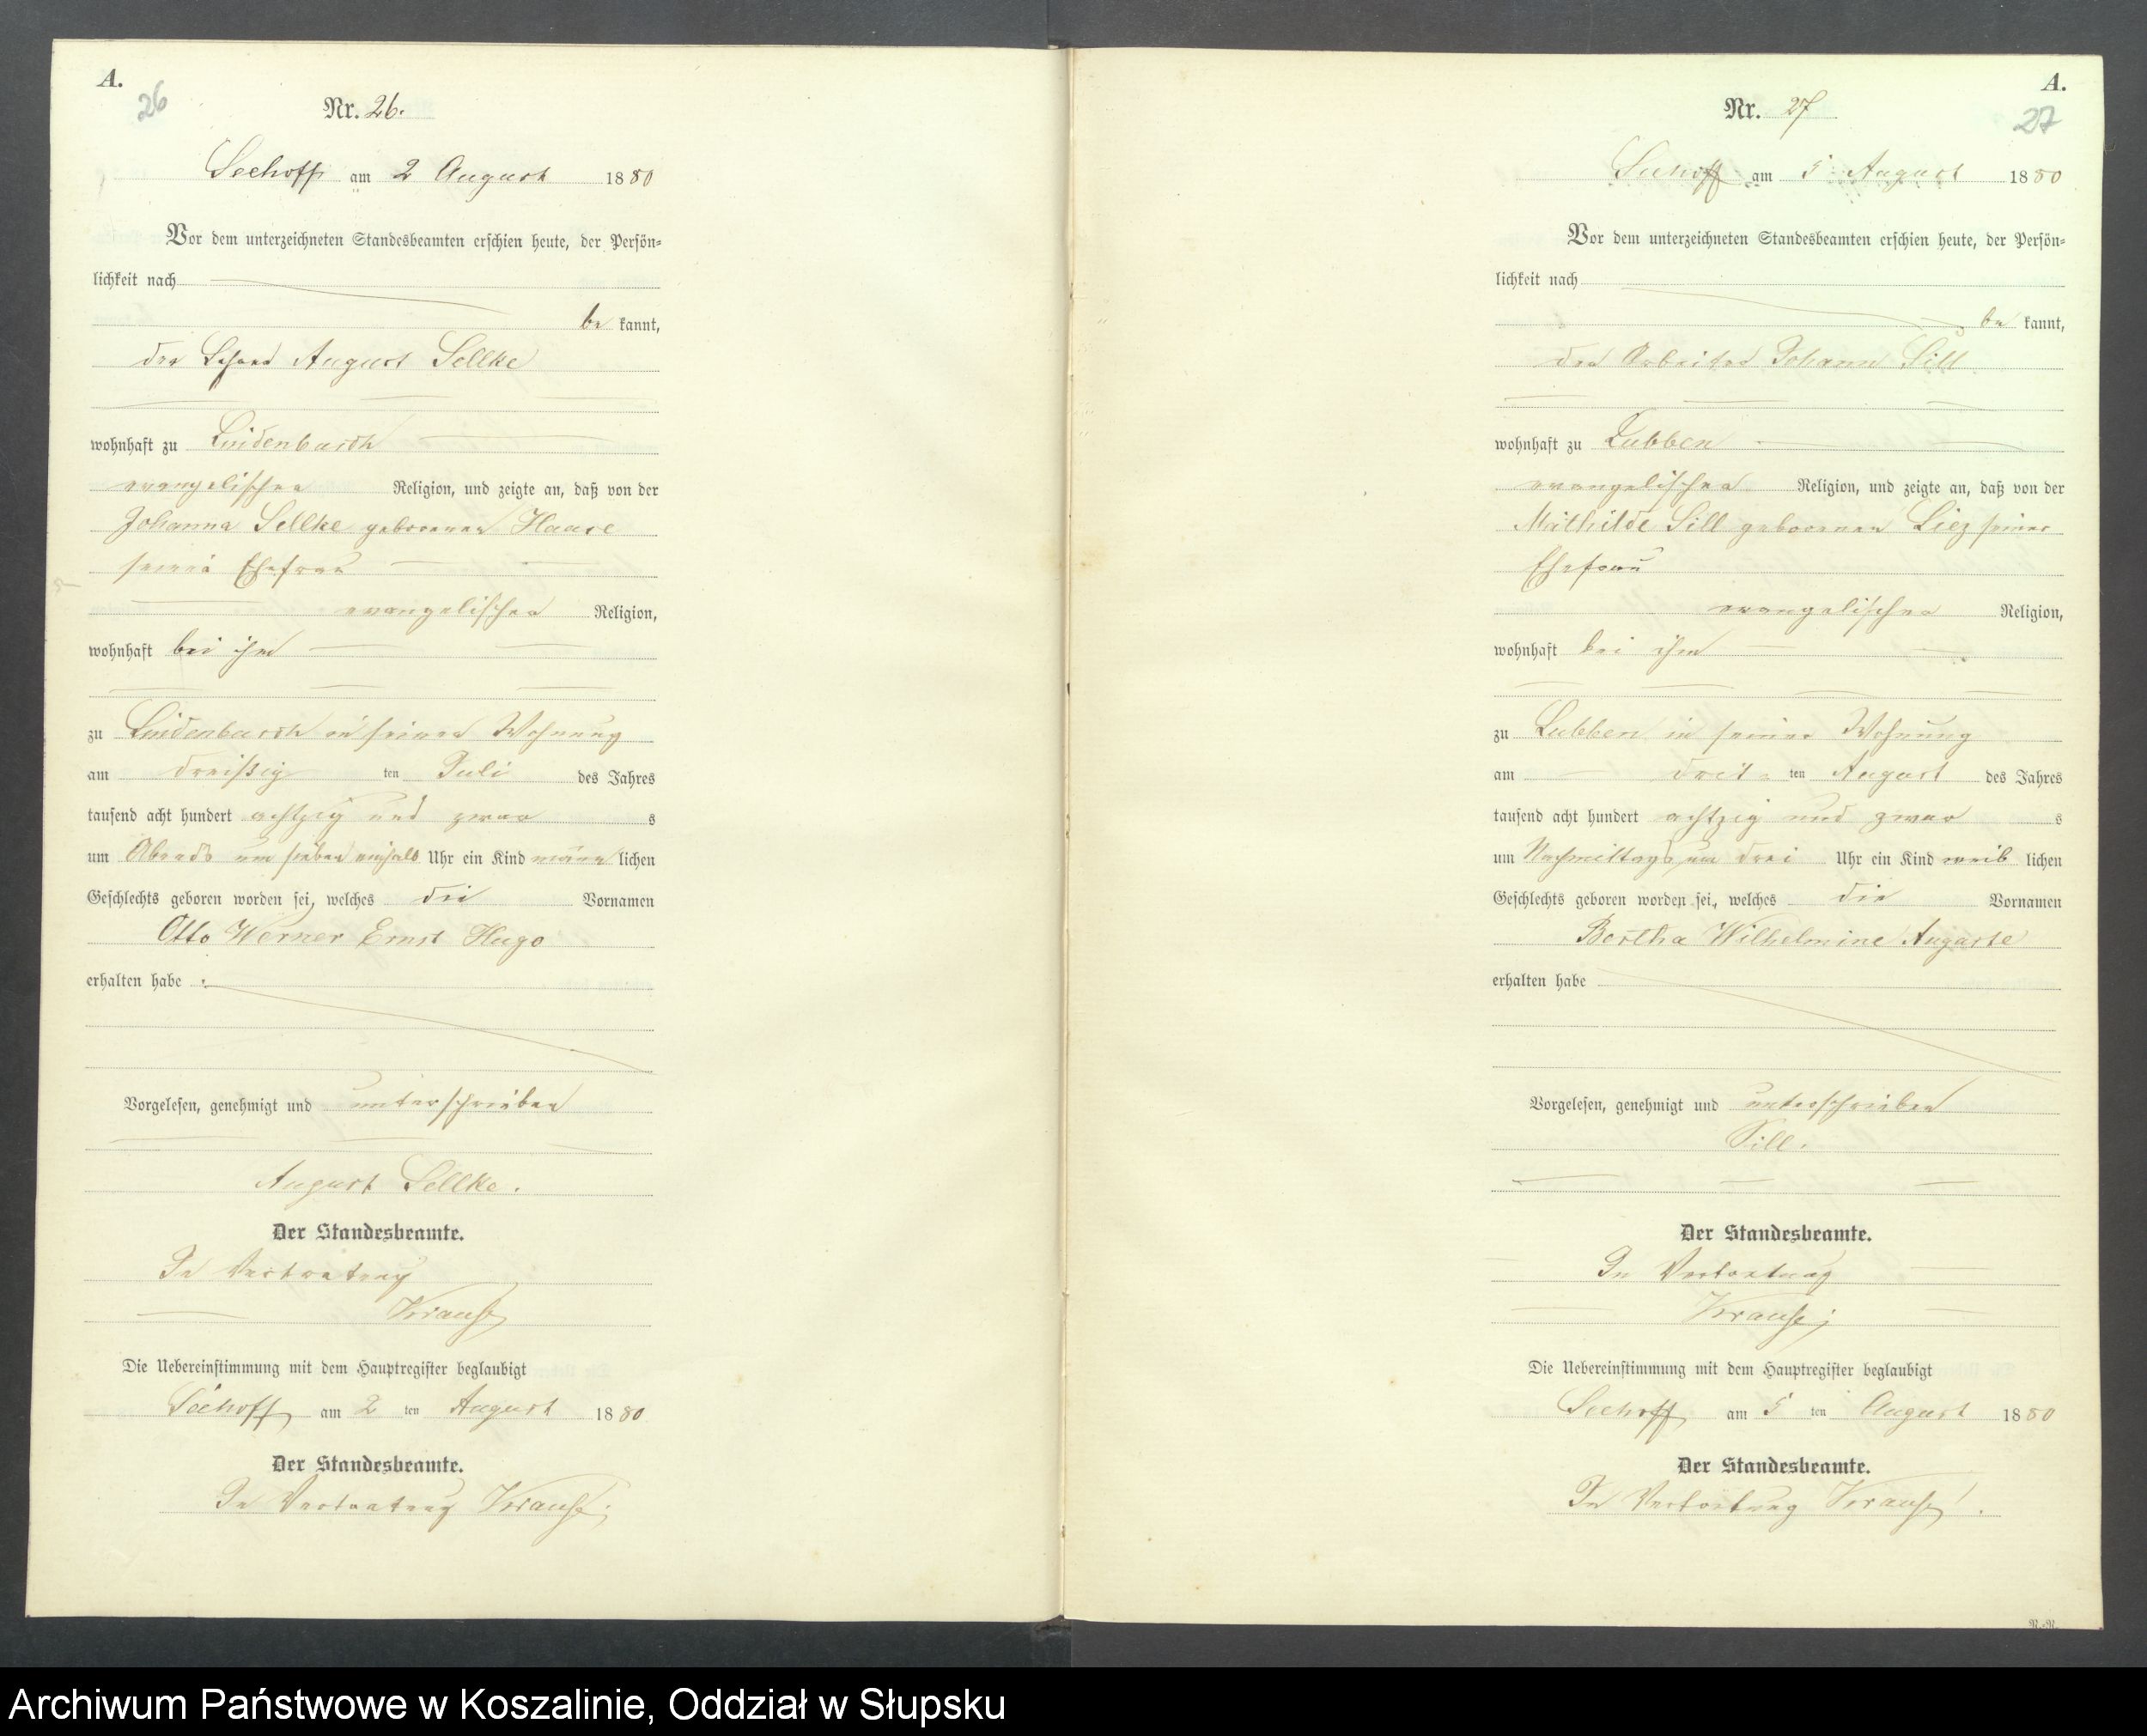 A.
26
Nr. 26.
Seehoff am 2 August 1880
Vor dem unterzeichneten Standesbeamten erschien heute, der Persön=
lichkeit nach
be kannt,
der Lehrer August Sellke
wohnhaft zu Lindenbusch
evangelischer Religion, und zeigte an, daß von der
Johanna Sellke geborenen Haase
seiner Ehefrau
evangelischer Religion,
wohnhaft bei ihm
zu Lindenbusch in seiner Wohnung
am dreißig ten Juli des Jahres
tausend acht hundert achtzig und zwar s
um Abends um sieben einhalb Uhr ein Kind männ lichen
Geschlechts geboren worden sei, welches die Vornamen
Otto Werner Ernst Hugo
erhalten habe
Vorgelesen, genehmigt und unterschrieben
August Sellke.
Der Standesbeamte.
In Vertretung
Krause
Die Uebereinstimmung mit dem Hauptregister beglaubigt
Seehoff am 2 ten August 1880
Der Standesbeamte.
In Vertretung Krause
A.
27
Nr. 27
Seehoff am 5 August 1880
Vor dem unterzeichneten Standesbeamten erschien heute, der Persön=
lichkeit nach
be kannt,
der Arbeiter Johann Sill
wohnhaft zu Lubben
evangelischer Religion, und zeigte an, daß von der
Mathilde Sill geborenen Liez seiner
Ehefrau
evangelischer Religion,
wohnhaft bei ihm
zu Lubben in seiner Wohnung
am drit= ten August des Jahres
tausend acht hundert achtzig und zwar s
um Nachmittags um drei Uhr ein Kind weib lichen
Geschlechts geboren worden sei, welches die Vornamen
Bertha Wilhelmine Auguste
erhalten habe
Vorgelesen, genehmigt und unterschrieben
Sill.
Der Standesbeamte.
In Vertretung
Krause
Die Uebereinstimmung mit dem Hauptregister beglaubigt
Seehoff am 5 ten August 1880
Der Standesbeamte.
In Vertretung Krause
Archiwum Państwowe w Koszalinie, Oddział w Słupsku